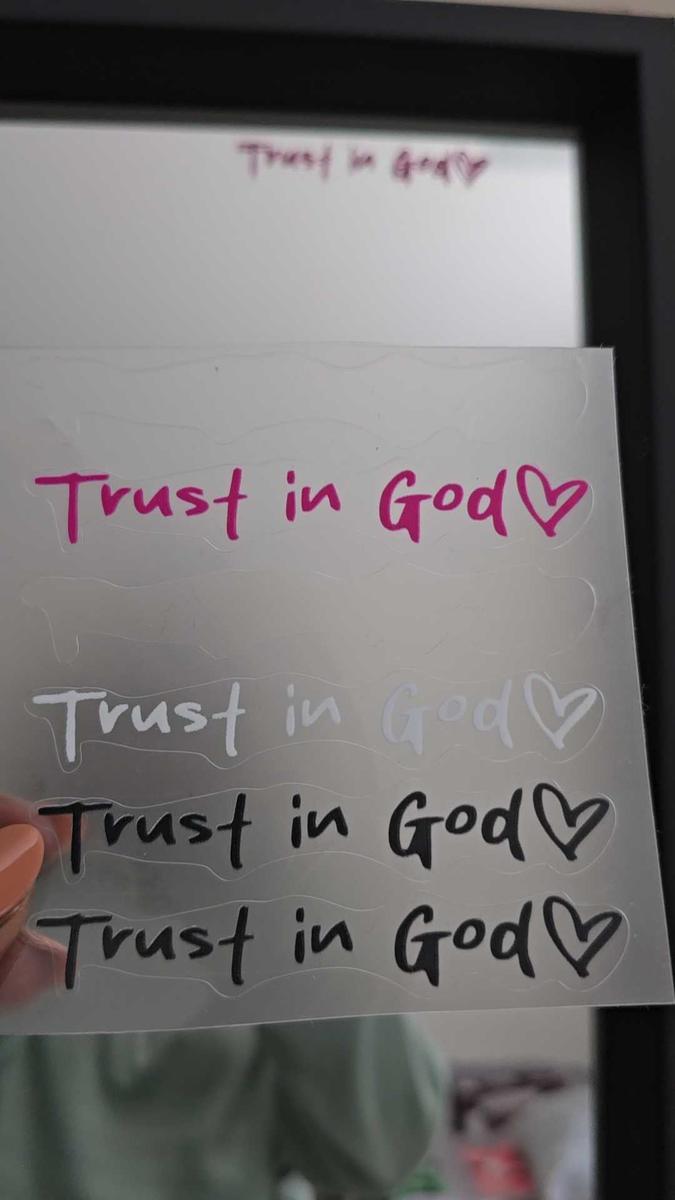 Trust in God♡
Trust in God♡
Trust in God♡
Trust in God♡
Trust in God♡